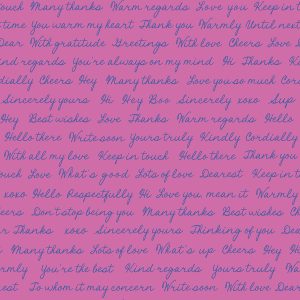 touch Many thanks Warm regards Love you Keep in t
time You warm my heart Thank you Warmly Until next
Dear With gratitude Greetings With love Cheers Love
ind regards You're always on my mind Hi Thanks K
dially Cheers Hey Many thanks Love you so much Cor
Sincerely yours Hi Hey Boo Sincerely xoxo Sup
Hey Best wishes Love Thanks Warm regards Hello
Hello there Write soon Yours truly Kindly Cordially
With all my love Keep in touch Hello there Thank you
touch Love What's good Lots of love Dearest Keep in t
xoxo Hello Respectfully Hi Love you, mean it Warmly
eers Don't stop being you Many thanks Best wishes C
r Thanks xoxo Sincerely yours Thinking of you Dea
t Many thanks Lots of love What's up Cheers Hey H
rmly You're the best Kind regards Yours truly Wa
est To whom it may concern Write soon With love Dea